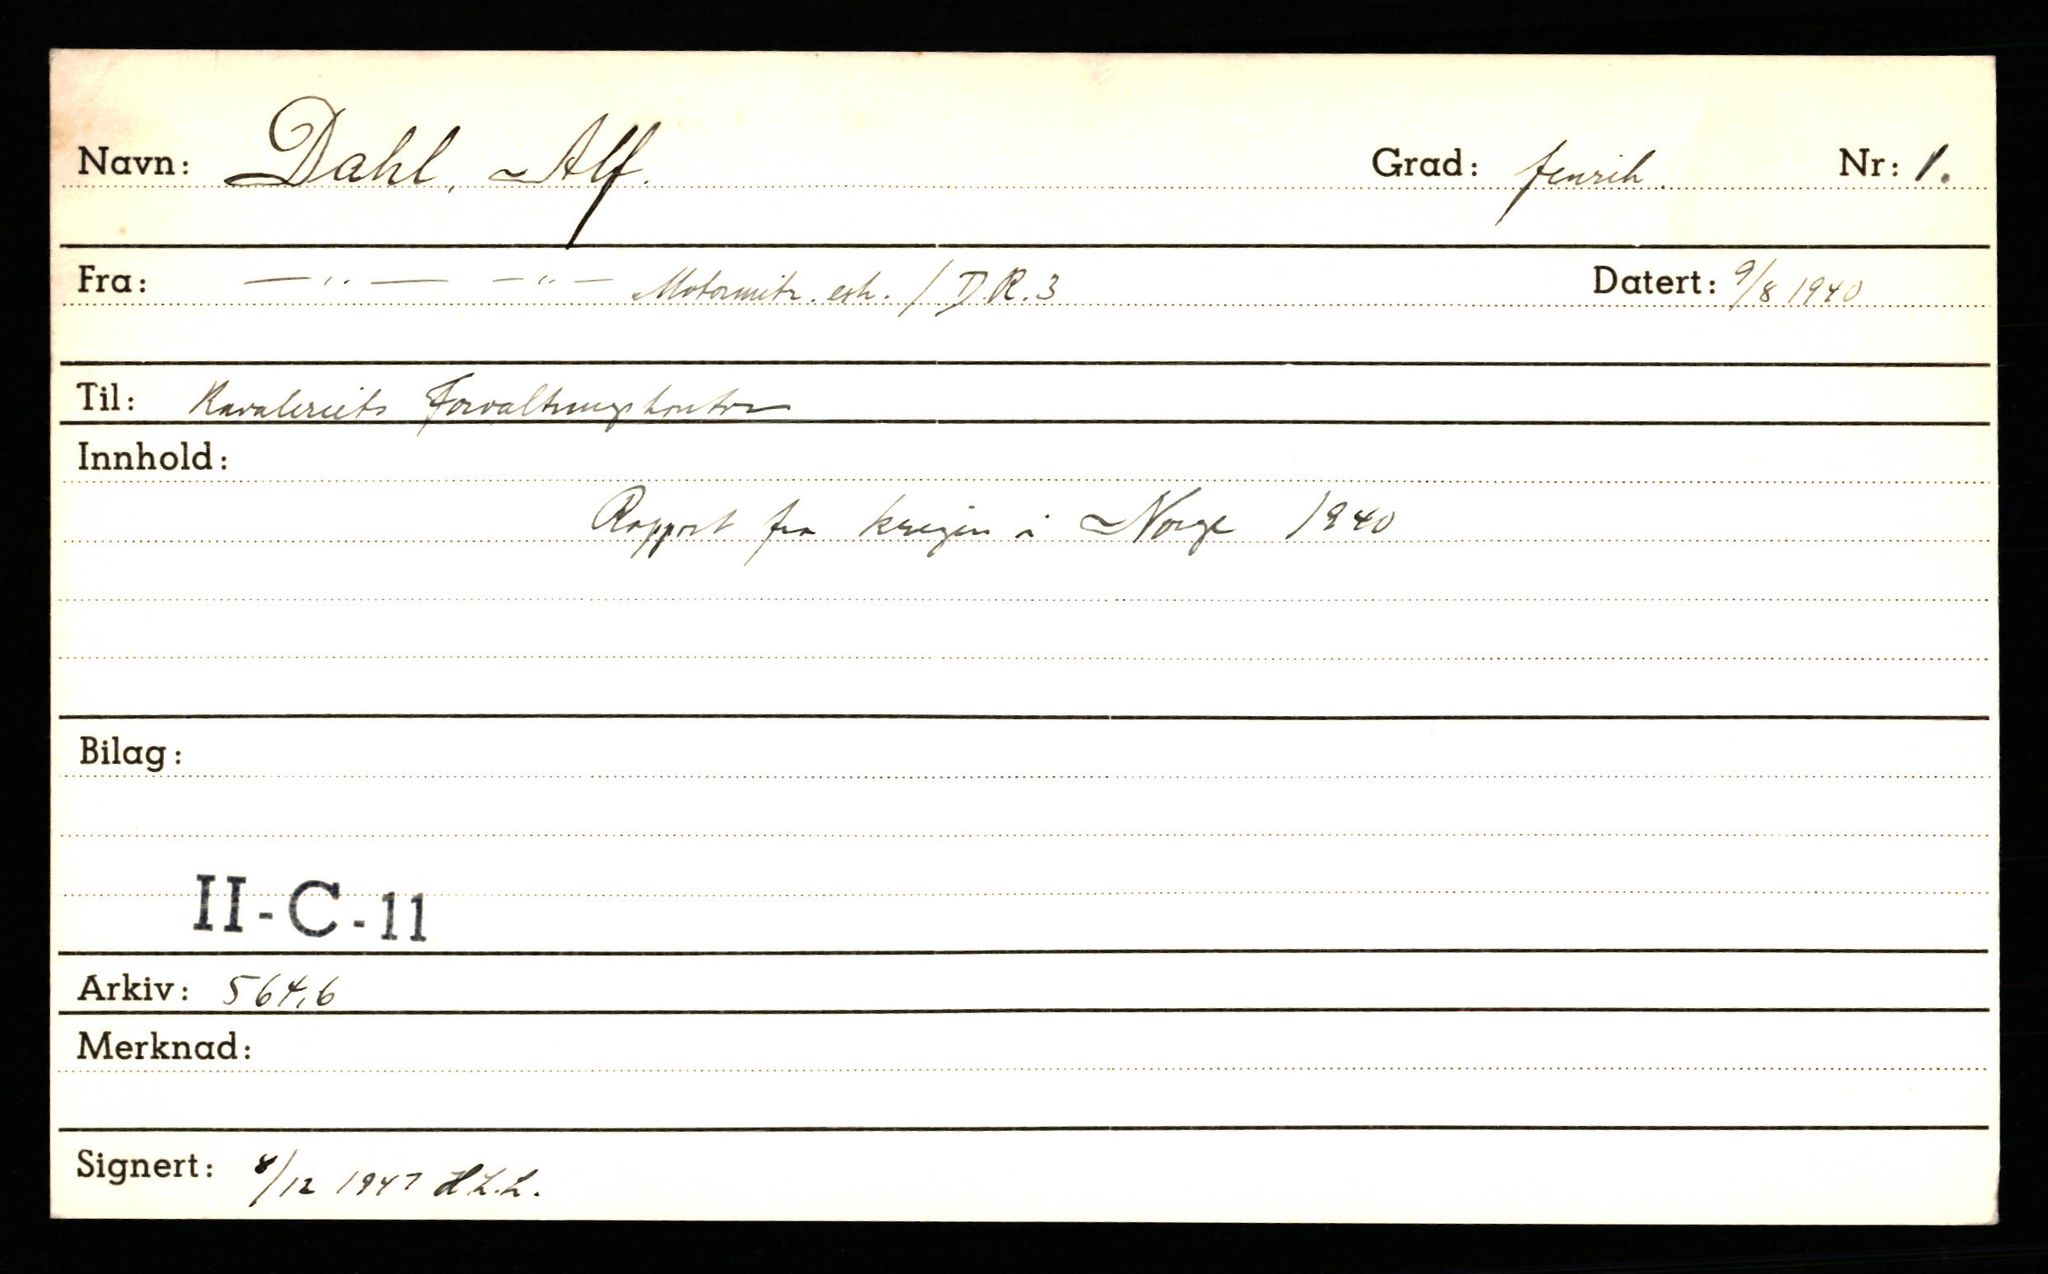 Navn: Dahl, Alf. Grad: fenrik. Nr: 1.
Fra: — " — — " — Motormitr. esk. / D.R.3 Datert: 9/8 1940
Til: Kavaleriets Forvaltningskontor
Innhold:
Rapport fra krigen i Norge 1940
Bilag:
II-C-11
Arkiv: 564,6
Merknad:
Signert: 8/12 1947 H.L.L.